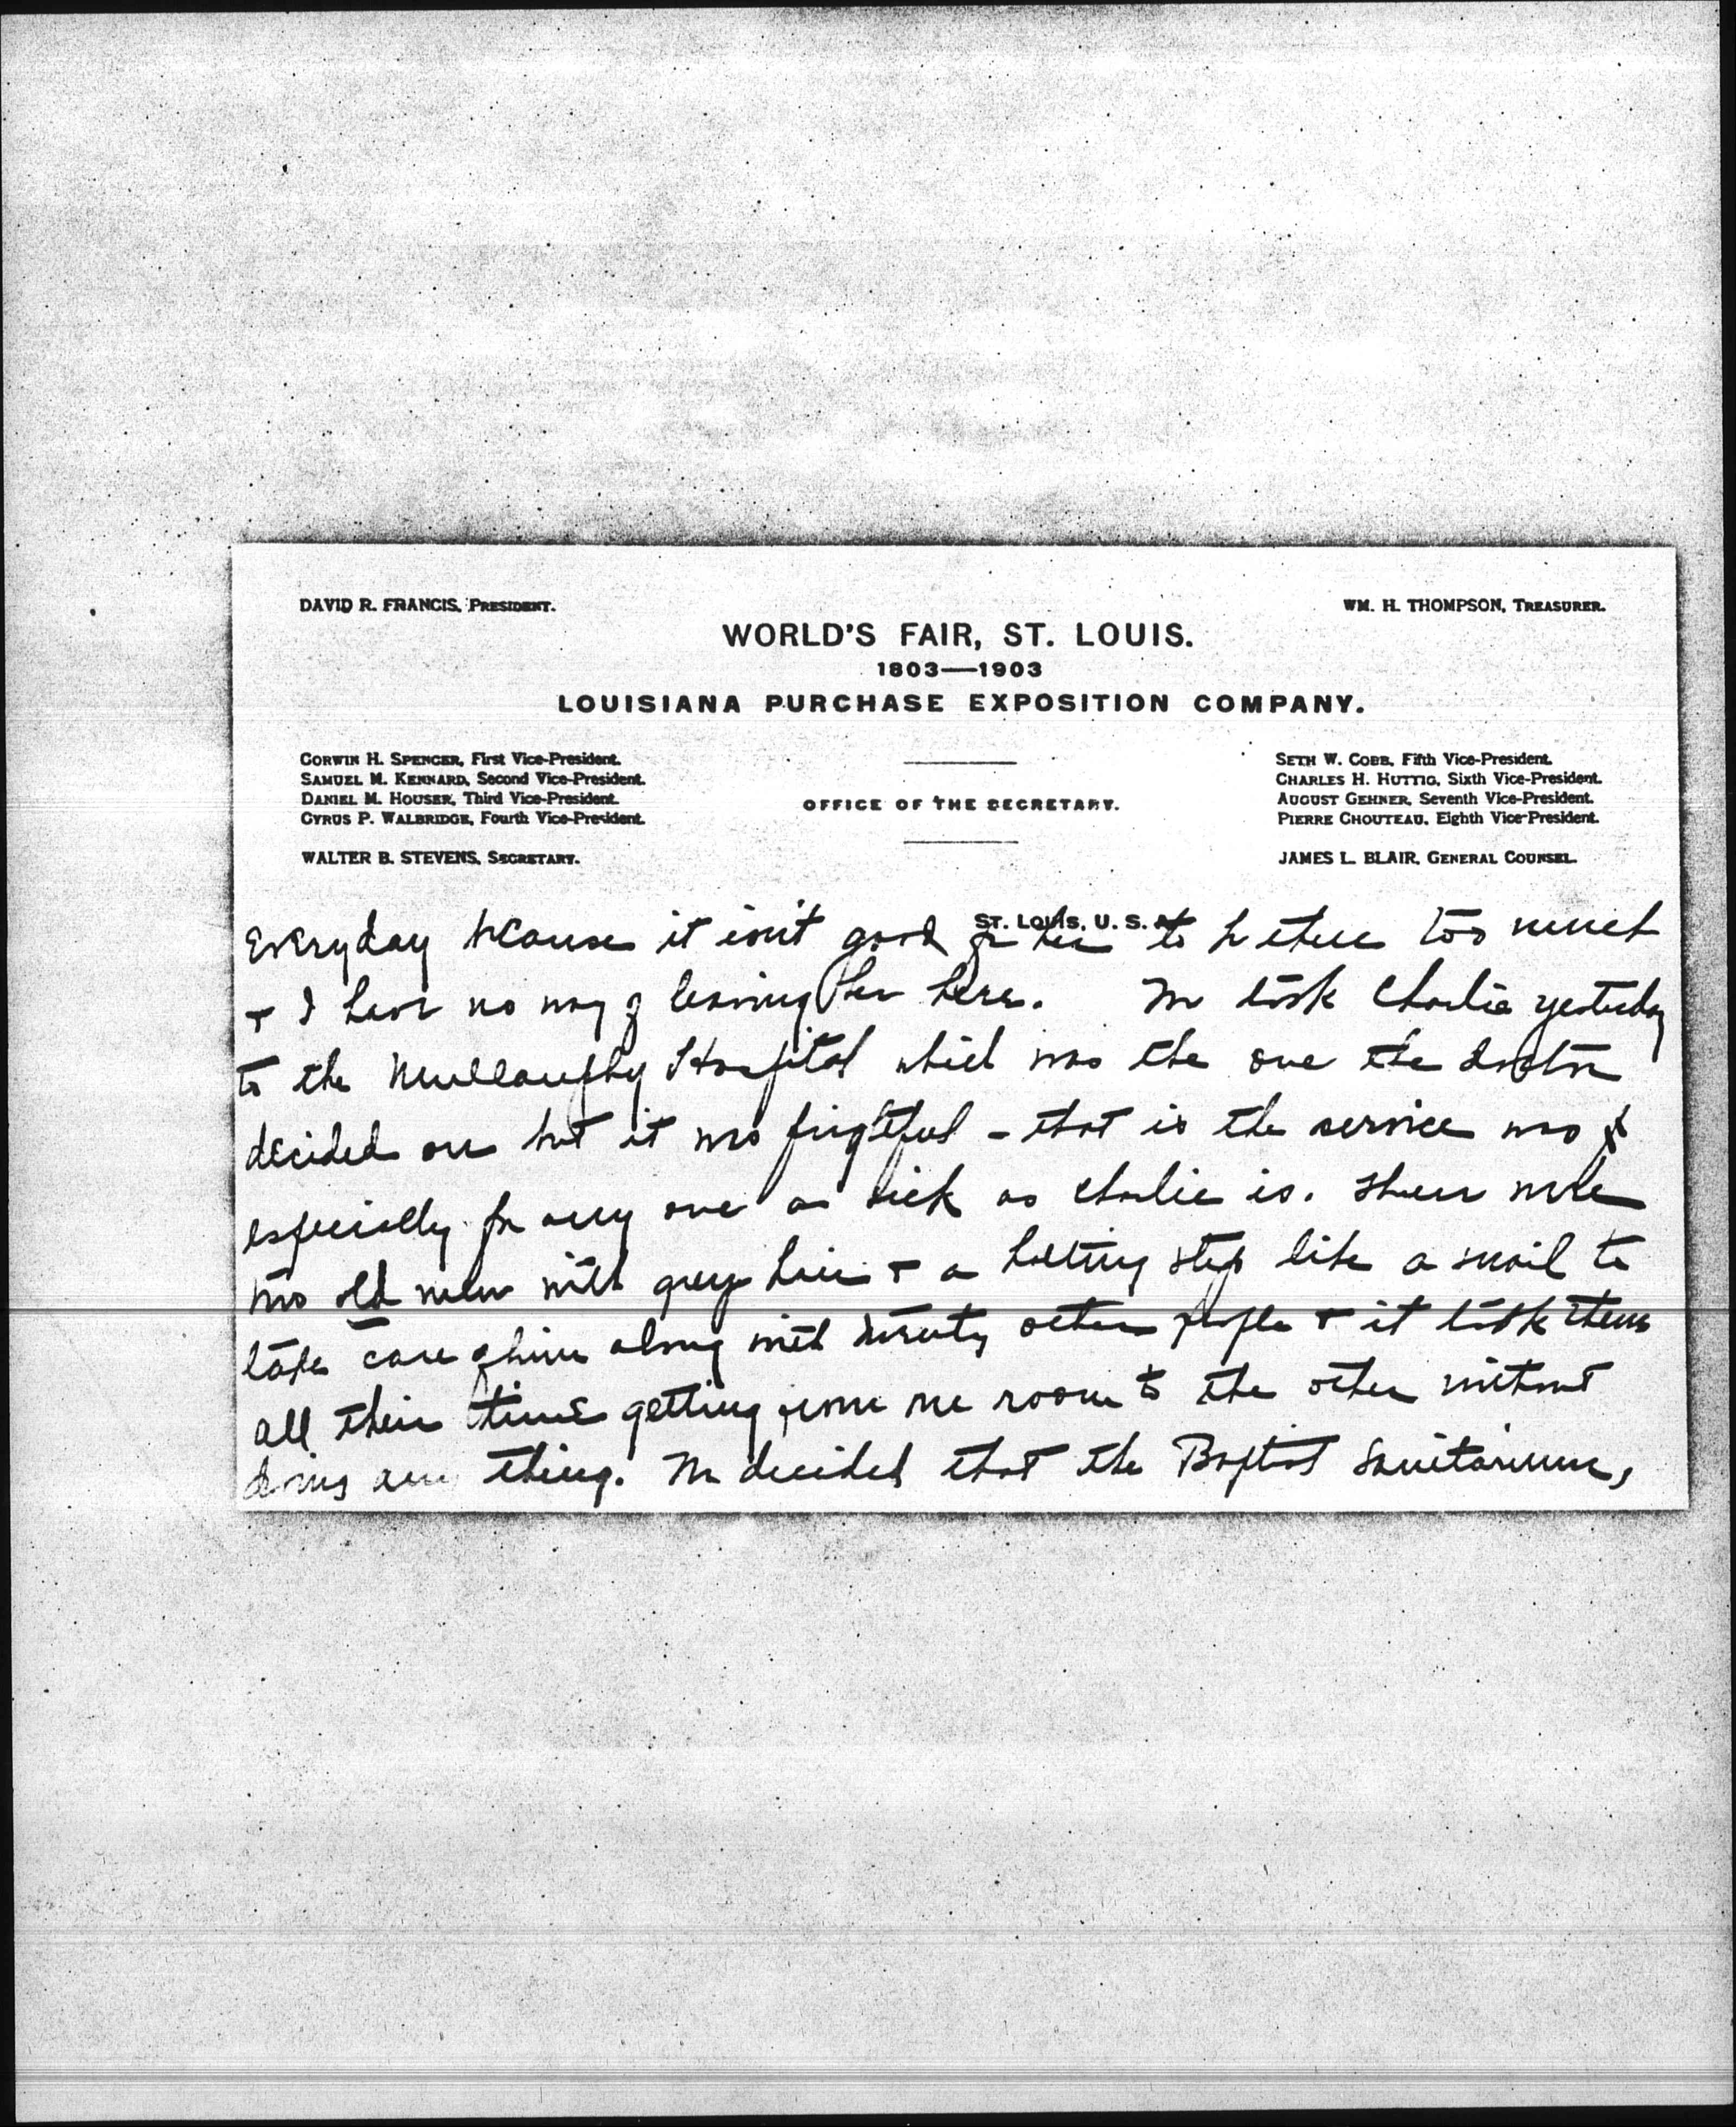 DAVID R. FRANCIS, PRESIDENT.
WM. H. THOMPSON, TREASURER.
WORLD'S FAIR, ST. LOUIS.
1803—1903
LOUISIANA PURCHASE EXPOSITION COMPANY.
CORWIN H. SPENCER, First Vice-President.
SAMUEL M. KENNARD, Second Vice-President.
DANIEL M. HOUSER, Third Vice-President.
CYRUS P. WALBRIDGE, Fourth Vice-President.
WALTER B. STEVENS, SECRETARY.
OFFICE OF THE SECRETARY.
SETH W. COBB, Fifth Vice-President.
CHARLES H. HUTTIG, Sixth Vice-President.
AUGUST GEHNER, Seventh Vice-President.
PIERRE CHOUTEAU, Eighth Vice-President.
JAMES L. BLAIR, GENERAL COUNSEL.
ST. LOUIS, U. S. A.
Everyday because it isn't good for her to be there too much
+ I have no way of leaving her here. We took Charlie yesterday
to the Mullanphy Hospital which was the one the doctor
decided on but it was frightful - that is the service was &
especially for any one as sick as Charlie is. There were
two old men with grey hair + a halting step like a snail to
take care of him along with twenty other people + it took them
all their time getting from one room to the other without
doing any thing. We decided that the Baptist Sanitarium,